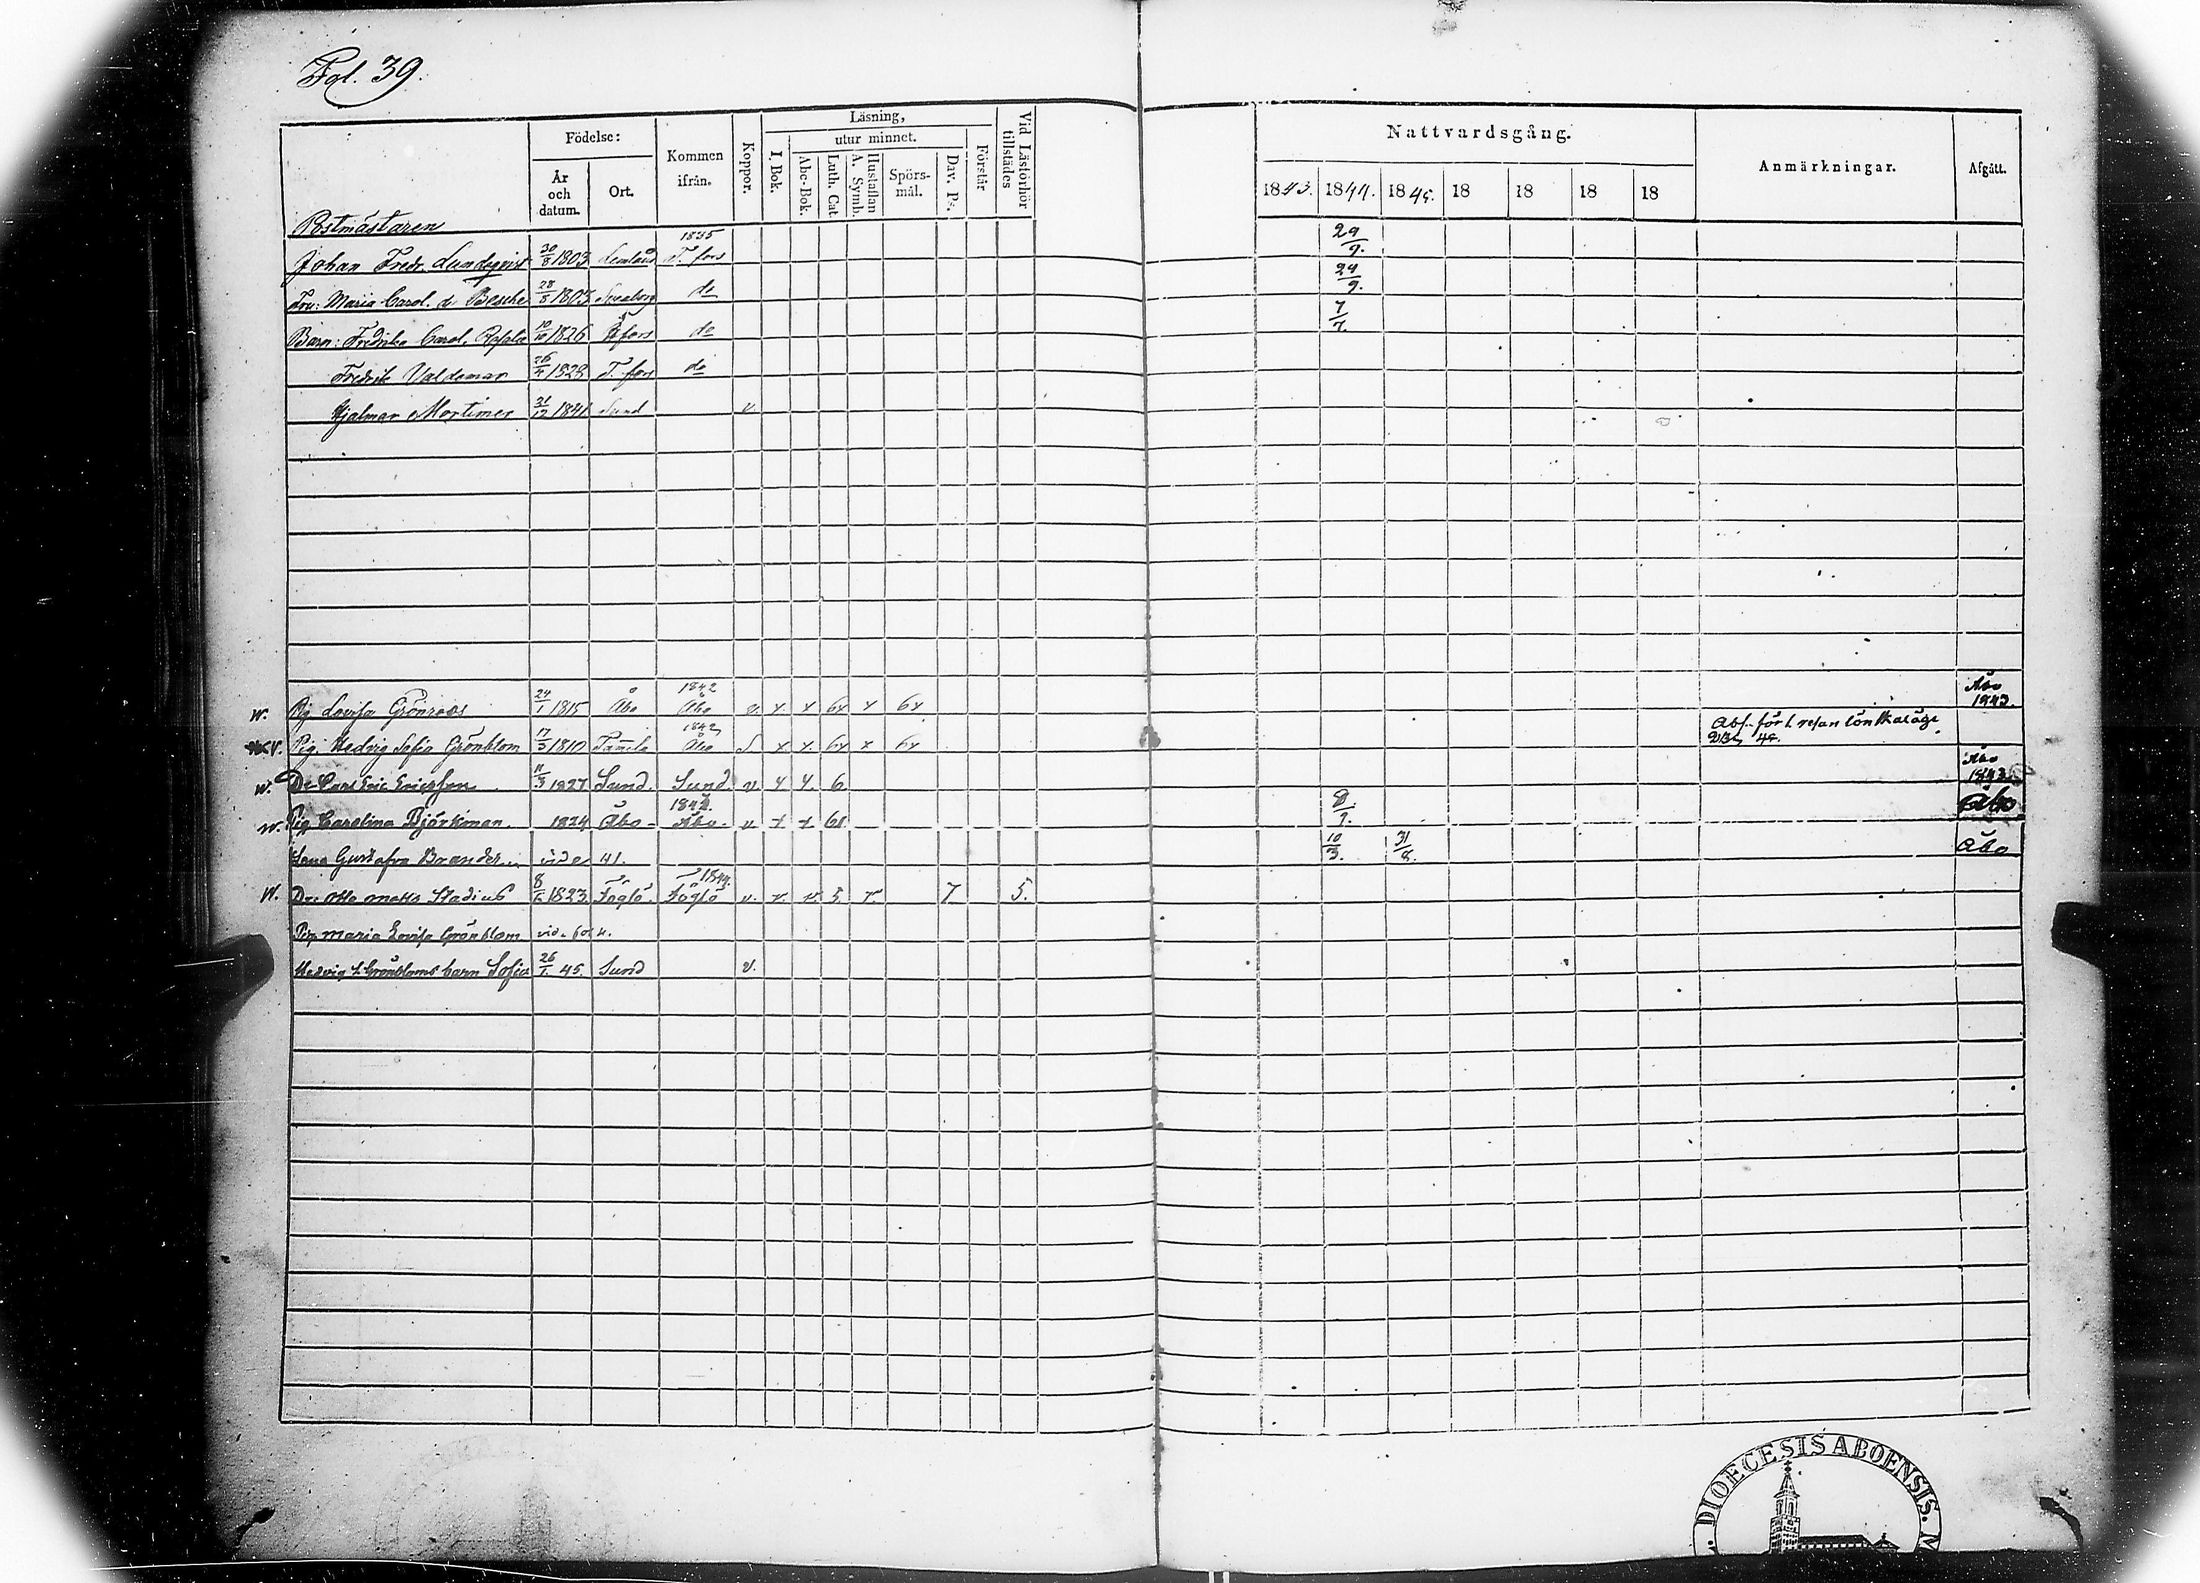 Fol. 39.
Födelse: Kommen ifrån. Koppor. Läsning, Vid Läsförhör tillstädes Nattvardsgång. Anmärkningar. Afgått.
År och datum. Ort. I Bok. utur minnet. Förstår
Abc-Bok. Luth. Cat. Hustaflan A. Symb. Spörsmål. Dav. Ps. 1843. 1844. 1845. 18 18 18 18
Postmästaren
Johan Fredr. Lundeqvist 30/8 1803 Lemland 1835 T. fors 29/9.
Fru: Maria Carol. de Besche 28/5 1803 Sveaborg do 29/9.
Barn: Fredrika Carol. 10/10 1826 Hfors do 7/7.
Fredrik Valdemar 26/4 1828 T. fors do
Hjalmar Mortimer 31/12 1841 Sund v.
w. Pig. Lovisa Grönroos 24/1 1815 Åbo 1842 Åbo v. x x 6x x 6x Åbo 1843.
Pig. Hedvig Sofia Grönblom 17/3 1810 1842 Åbo x x 6x x 6x Abs. för 1. resan lönskaläge
w. Dr. Carl Eric Ericsson 11/3 1827 Sund. Sund. v x x. 6 Åbo 1843
w. Pig. Carolina Björkman. 1824 Åbo - 1842. Åbo - v x x 8/9. Åbo
Gustafva Brander vide 41. 10/3. 31/8. Åbo
w. Dr. Otto Matts Stadius 1823 Föglö. 1844. Föglö v. x. x. 5. x 7 5.
Pig. Maria Lovisa Grönblom vide fol.
Hedvig S. Grönbloms barn Sofia 26/1. 45. Sund v.
DIOECESIS ABOENSIS. M